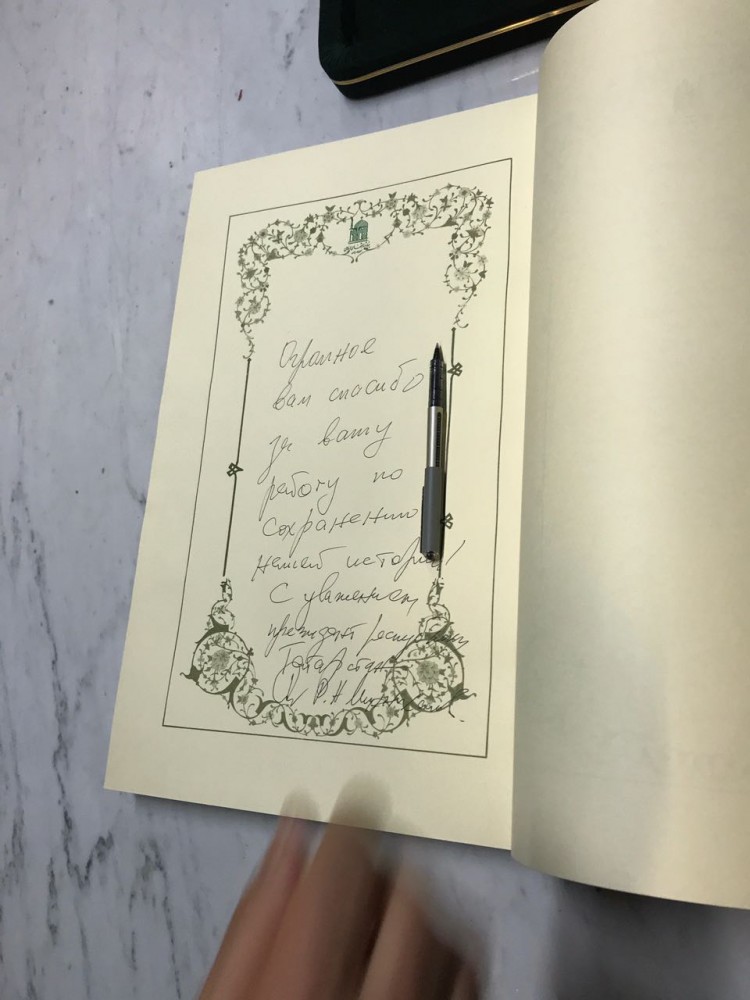 Огромное
вам спасибо
за вашу
работу по
сохранению
нашей истории!
С уважением,
президент республики
Татарстан
Р.Н. Минниханов.